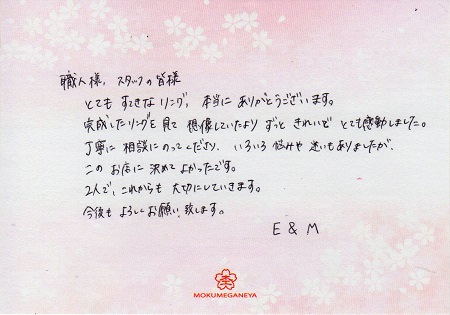 職人様，スタッフの皆様
とても すてきなリング，本当に ありがとうございます。
完成したリングを見て 想像していたより ずっと きれいで とても感動しました。
丁寧に 相談にのってくださり，いろいろ 悩みや 迷いもありましたが，
この お店に 決めて よかったです。
2人で，これからも 大切にしていきます。
今後も よろしくお願い致します。
E & M
MOKUMEGANEYA